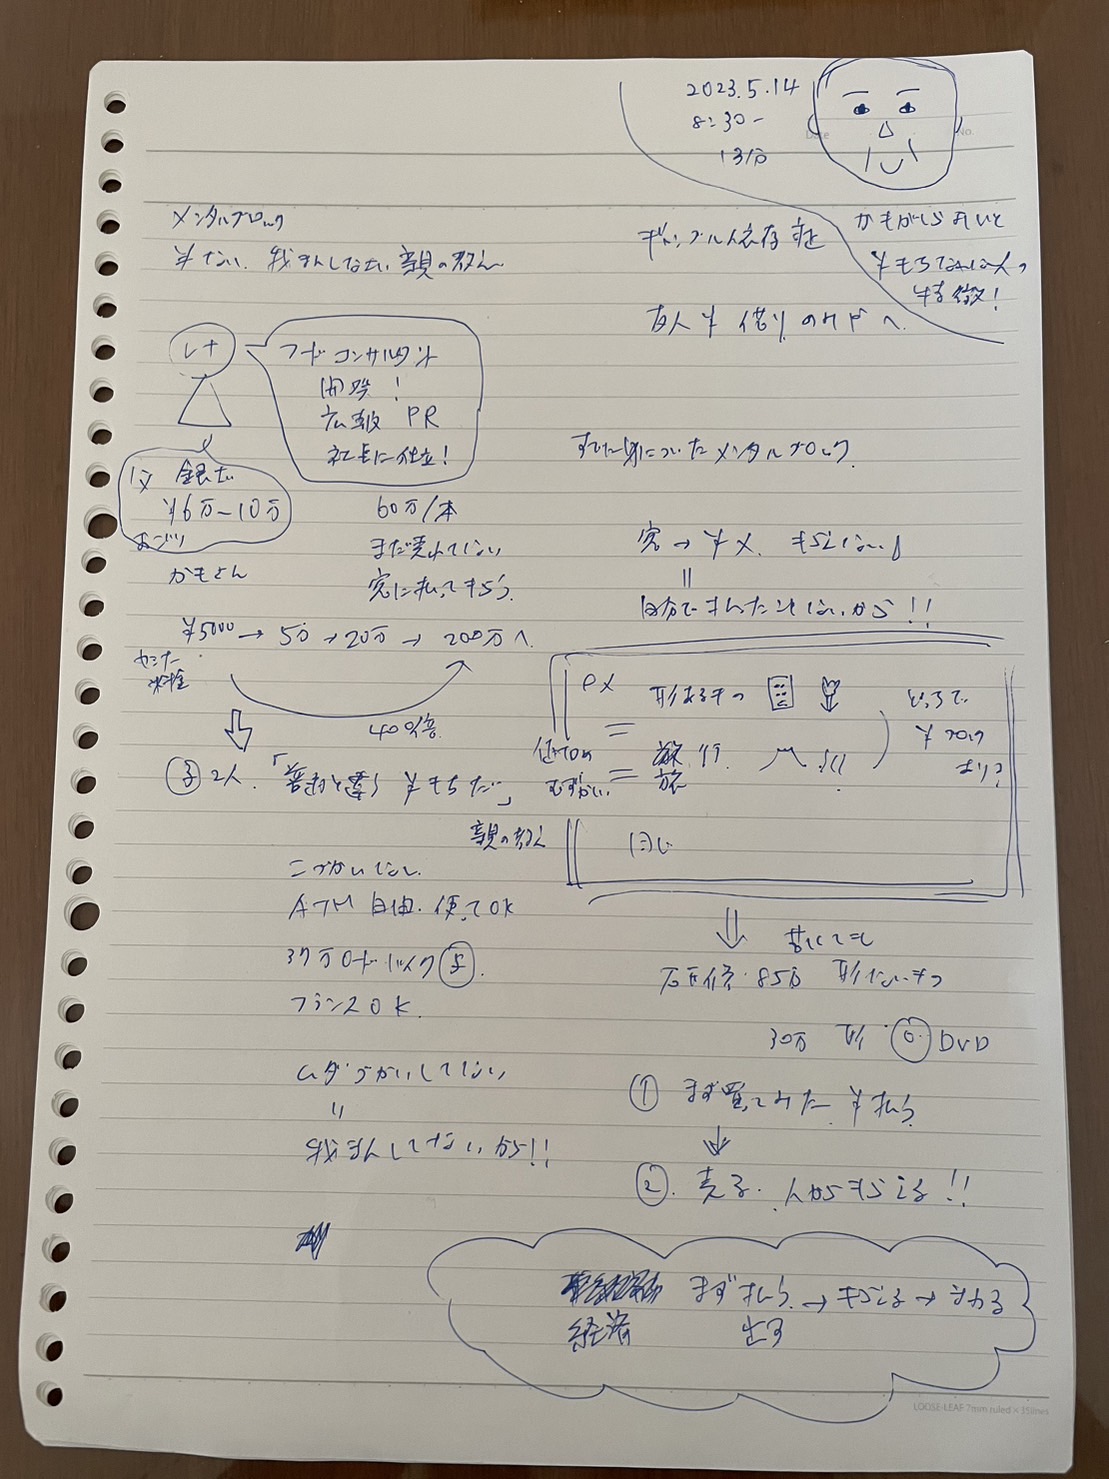 2023.5.14
8:30-
13分
Date
No.
かもがしらよいと
¥もちてない人の
特徴!
メンタルブロック
¥ない、我まんしなさい、親の教え
ギャンブル依存症
友人 ¥ 借り
レナ
フードコンサルタント
開発!
広報 PR
社長に仕立!
銀だ
¥6万〜10万
おごり
かもさん
60万/本
まだ売れてない
客に払ってもらう。
¥5000 → 5万 → 20万 → 200万へ
セミナー
料金
400倍
すでに身についたメンタルブロック
客→¥×、もらえない。
=
自分で 

したことないから!!
PX
形あるもの
どっちで
¥つかい
ますか
旅行
旅
むずかしい
親の教え
同じ
子 2人、「普通と違う ¥もちだ」
こづかいなし
ATM 自由、使ってOK
37万 ロードバイク
フランスOK
ムダづかいしてない
=
我まんしてないから!!
85万 形ないもの
30万 形 DVD
① まず買ってみた ¥払う
② 売る、人からもらえる!!
まず払う → もらえる → 
経済 出す
LOOSE-LEAF 7mm ruled × 35lines